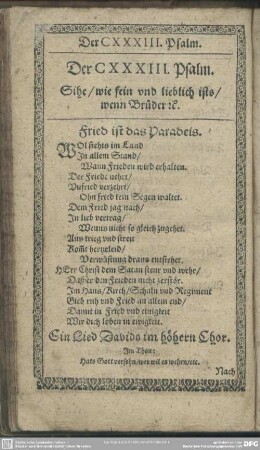 Der CXXXIII. Psalm.
Der CXXXIII. Psalm.
Sihe/ wie fein vnd lieblich ists/
wenn Brüder ꝛc.
Fried ist das Paradeis.
WOl stehts im Land
In allem Stand/
Wann Frieden wird erhalten.
Der Friede nehrt/
Vnfried verzehrt/
Ohn fried kein Segen waltet.
Dem Fried jag nach/
In lieb vertrag/
Wenns nicht so gleich zugehet.
Auß krieg vnd streit
Kom̃t hertzeleid/
Verwüstung draus entstehet.
HErr Christ dem Satan steur vnd wehr/
Daß er den Frieden nicht zerstör.
Im Hauß/ Kirch/ Schuln vnd Regiment
Gieb ruh vnd Fried an allem end/
Damit in Fried vnd einigkeit
Wir dich loben in ewigkeit.
Ein Lied Davids im höhern Chor.
Im Thon:
Hats Gott versehn/ wer wil es wehren/ etc.
Nach
DFG